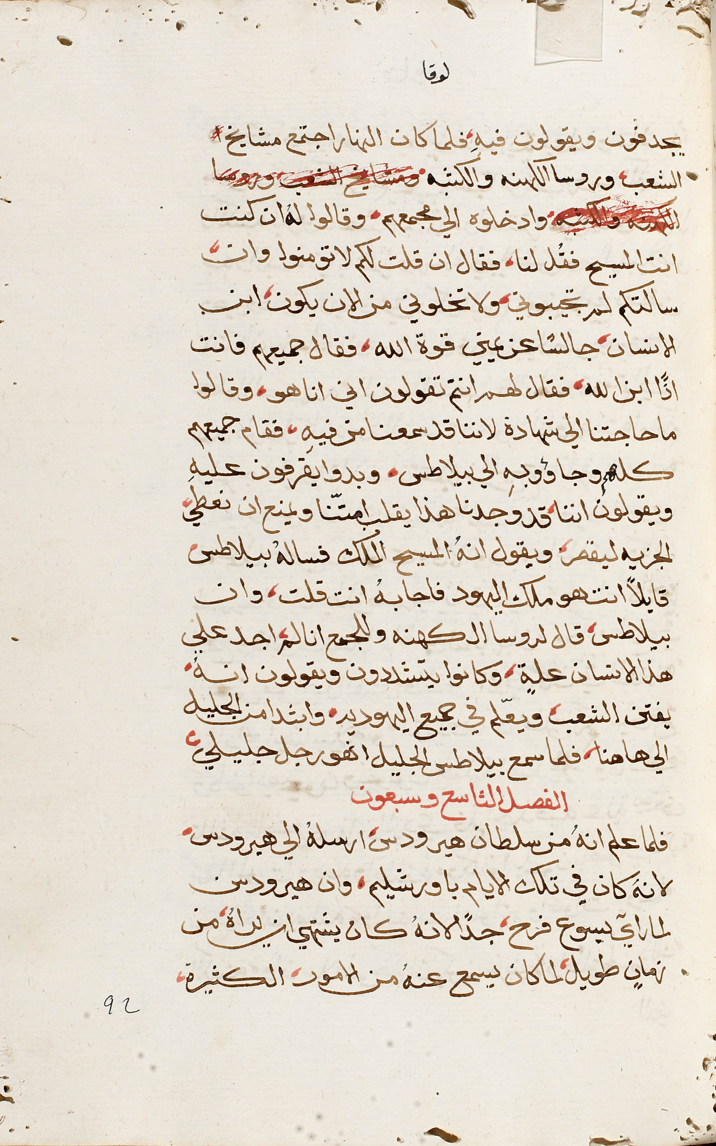 لوقا
يجدفون ويقولون فيهِ فلما كان النهار اجتمع مشايخ
الشعب وروسا الكهنه والكتبه ومشايخ الشعب وروسا
الكهنه والكتبه وادخلوه الي مجمعهم وقالوا لهُ ان كنت
انت المسيح فقُل لنا فقال ان قلت لكم لا تومنوا وان
سالتكم لم تجيبوني ولا تخلوني من الان يكون ابن
الانسان جالسًا عن يميني قوة الله فقال جميعهم فانت
اذًا ابن الله فقال لهم انتم تقولون اني انا هو وقالوا
ما حاجتنا الي شهادة لاننا قد سمعنا من فيهِ فقام جميعهم
كلهم وجاووبهِ الي بيلاطس وبدوا يقرفون عليهِ
ويقولون اننا قد وجدنا هذا يقلب امتّنا ويمنع ان نعطي
الجزيه ليقصر ويقول انهُ المسيح الملك فسالهُ بيلاطس
قايلاً انت هو ملك اليهود فاجابهُ انت قلت وان
بيلاطس قال لروسا الكهنه وللجمع انا لم اجد علي
هذا الانسان علةٍ وكانوا يتشددون ويقولون انهُ
يفتن الشعب ويعّلم في جميع اليهوديه وابتدا من الجليل
الي هاهنا فلما سمع بيلاطس الجليل انهُو رجل جليلي
الفصل التاسع وسبعون
فلما علم انهُ من سلطان هيرودس ارسلهُ الي هيرودس
لانهُ كان في تلك الايام باورشليم وان هيرودس
لما راي يسوع فرح جدًا لانهُ كان يشتهي ان يراهُ من
زمانٍ طويل لما كان يسمع عنهُ من الامور الكثيرة
92